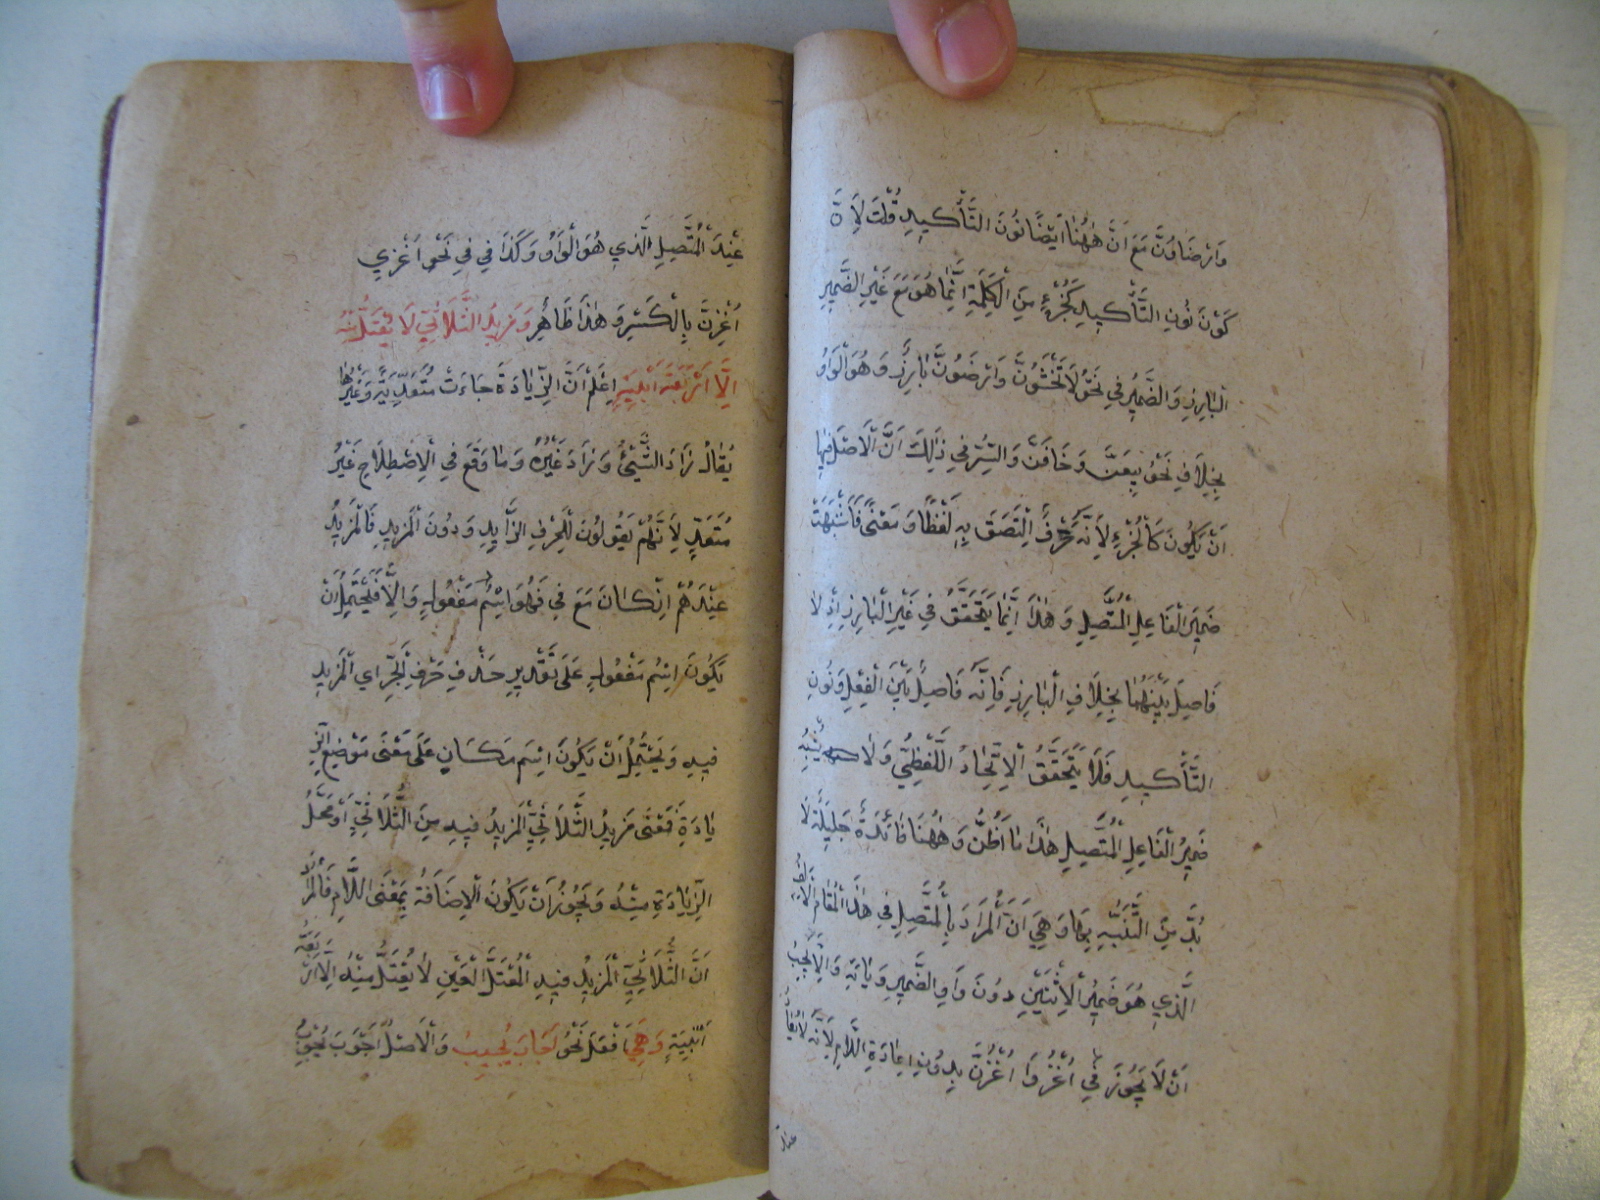 وَارْضَاوُنَّ مَعَ اَنَّ هٰهُنَا اَيْضًا نُونَ التَّأْكِيدِ قُلْتُ لِاَنَّ
كَوْنَ نُونِ التَّأْكِيدِ كَجُزْءٍ مِنَ الْكَلِمَةِ اِنَّمَا هُوَ مَعَ غَيْرِ الضَّمِيرِ
الْبَارِزِ وَالضَّمِيرُ فِي نَحْوِ لَاتَخْشَوُنَّ وَارْضَوُنَّ بَارِزٌ وَهُوَ الْوَاوُ
بِخِلَافِ نَحْوِ بِيعَنَّ وَخَافَنَّ وَالسِّرُّ فِي ذٰلِكَ اَنَّ الْاَصْلَ فِيهَا
اَنْ يَكُونَ كَالْجُزْءِ لِاَنَّهُ حَرْفٌ اِلْتَصَقَ بِهِ لَفْظًا وَمَعْنًى فَاَشْبَهَتْ
ضَمِيرَ الْفَاعِلِ الْمُتَّصِلِ وَهٰذَا اِنَّمَا يَتَحَقَّقُ فِي غَيْرِ الْبَارِزِ اِذْ لَا
فَاصِلَ بَيْنَهُمَا بِخِلَافِ الْبَارِزِ فَاِنَّهُ فَاصِلٌ بَيْنَ الْفِعْلِ وَنُونِ
التَّأْكِيدِ فَلَا يَتَحَقَّقُ الْاِتِّحَادُ اللَّفْظِيُّ وَلَا يُشْبِهُ
ضَمِيرُ الْفَاعِلِ الْمُتَّصِلِ هٰذَا مَا اَظُنُّ وَهٰهُنَا فَائِدَةٌ جَلِيلَةٌ لَا
بُدَّ مِنَ التَّنَبُّهِ بِهَا وَهِيَ اَنَّ الْمُرَادَ بِالْمُتَّصِلِ فِي هٰذَا الْمَقَامِ الْاَلِفُ
الَّذِي هُوَ ضَمِيرُ الْاِثْنَيْنِ دُونَ وَاوِ الضَّمِيرِ وَيَائِهِ وَاِلَّا يَجِبُ
اَنْ لَا يَجُوزَ فِي اُغْزُوا اُغْزُنَّ بِدُونِ اِعَادَةِ اللَّامِ لِاَنَّهُ لَا يُقَالُ
عند
عِنْدَ الْمُتَّصِلِ الَّذِي هُوَ الْوَاوُ وَكَذَا فِي فِي نَحْوِ اُغْزِي
اُغْزِنَّ بِالْكَسْرِ وَهٰذَا ظَاهِرٌ وَمَزِيدُ الثُّلَاثِيِّ لَا يُعْتَلُّ مِنْهُ
اِلَّا اَرْبَعَةُ اَبْنِيَةٍ اِعْلَمْ اَنَّ الزِّيَادَةَ جَاءَتْ مُتَعَدِّيَةً وَغَيْرَهَا
يُقَالُ زَادَ الشَّيْئُ وَزَادَ غَيْرُهُ وَمَا وَقَعَ فِي الْاِصْطِلَاحِ غَيْرُ
مُتَعَدٍّ لِاَنَّهُمْ يَقُولُونَ لِلْحَرْفِ الزَّايِدِ وَدُونَ الْمَزِيدِ فَالْمَزِيدُ
عِنْدَهُمْ اِنْ كَانَ مَعَ فِي فَهُوَ اِسْمُ مَفْعُولٍ وَاِلَّا فَيَحْتَمِلُ اَنْ
يَكُونَ اِسْمَ مَفْعُولٍ عَلَى تَقْدِيرِ حَذْفِ حَرْفِ الْجَرِّ اَيِ الْمَزِيدِ
فِيهِ وَيَحْتَمِلُ اَنْ يَكُونَ اِسْمَ مَكَانٍ عَلَى مَعْنَى مَوْضِعِ الزِّ
يَادَةِ فَمَعْنَى مَزِيدُ الثُّلَاثِيِّ الْمَزِيدُ فِيهِ مِنَ الثُّلَاثِيِّ اَوْ مَحَلُّ
الزِّيَادَةِ مِنْهُ وَيَجُوزُ اَنْ يَكُونَ الْاِضَافَةُ بِمَعْنَى اللَّامِ فَالْمُرَادُ
اَنَّ الثُّلَاثِيَّ الْمَزِيدَ فِيهِ الْمُعْتَلَّ الْعَيْنِ لَا يُعْتَلُّ مِنْهُ اِلَّا اَرْبَعَةُ
اَبْنِيَةٍ وَهِيَ اَفْعَلَ نَحْوُ اَجَابَ يُجِيبُ وَالْاَصْلُ اَجْوَبَ يُجْوِبُ